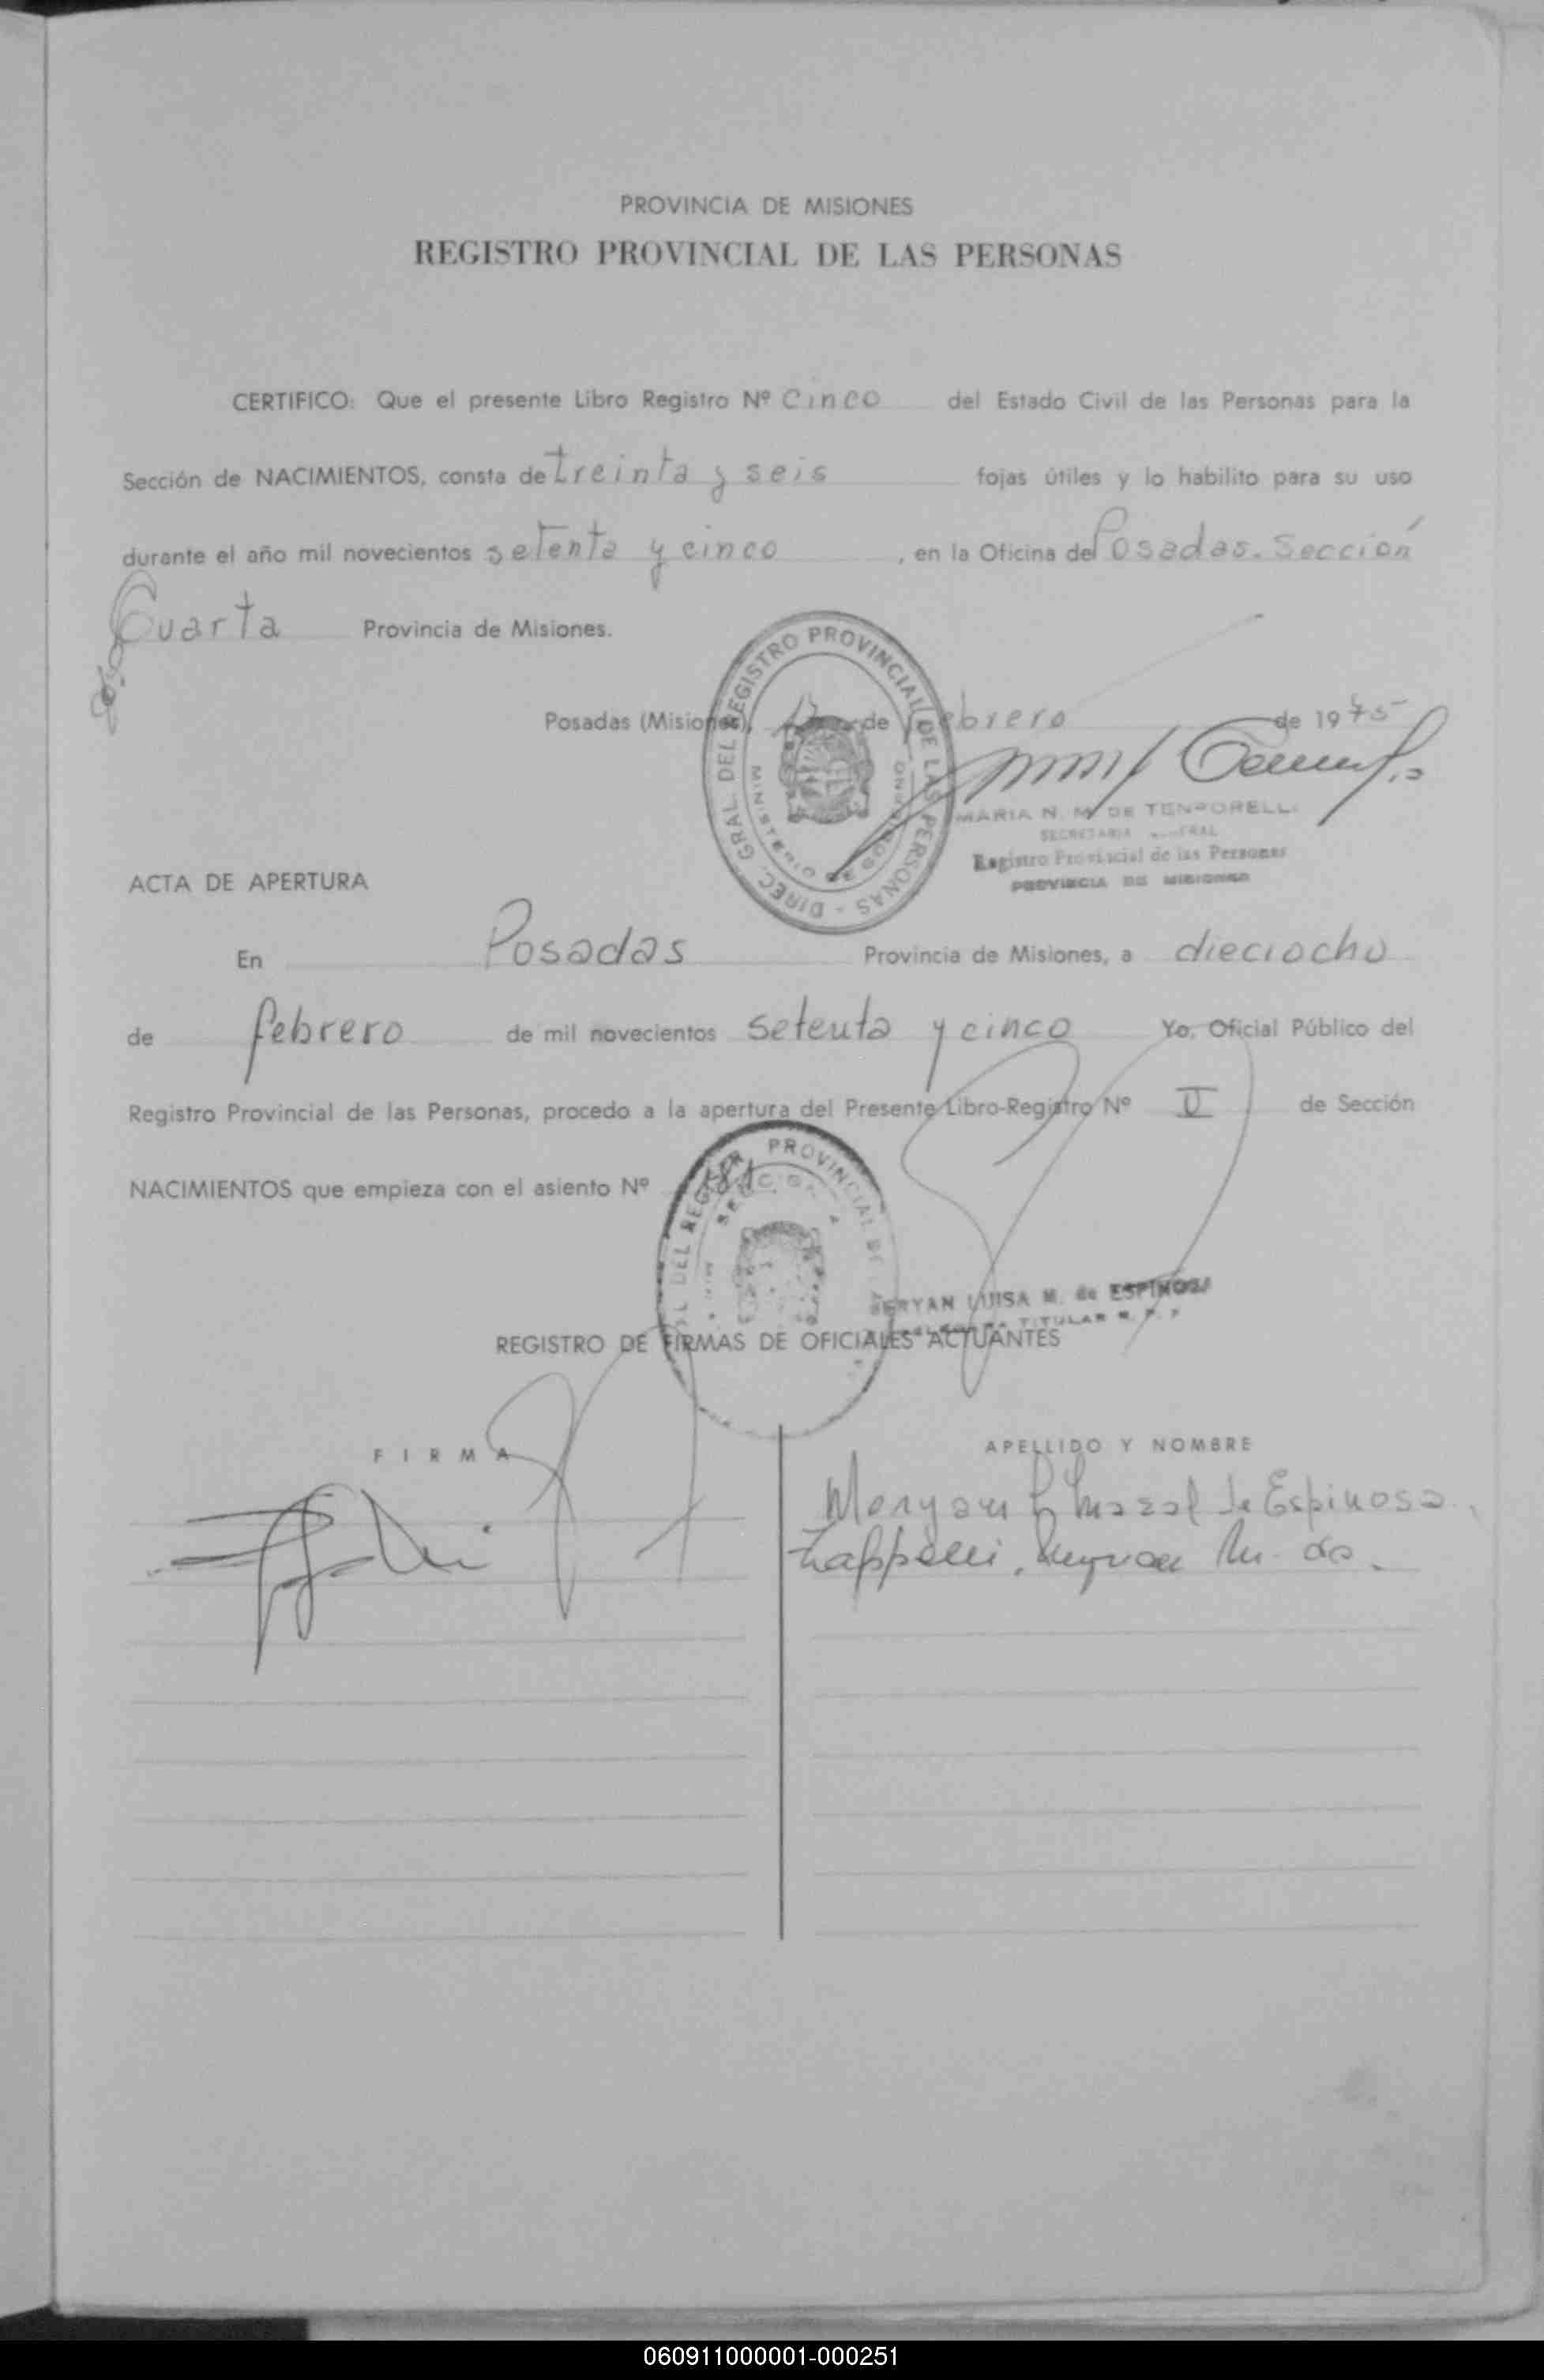 PROVINCIA DE MISIONES
REGISTRO PROVINCIAL DE LAS PERSONAS
CERTIFICO: Que el presente Libro Registro Nº Cinco del Estado Civil de las Personas para la
Sección de NACIMIENTOS, consta de treinta y seis fojas útiles y lo habilito para su uso
durante el año mil novecientos setenta y cinco, en la Oficina de Posadas. Sección
Cuarta Provincia de Misiones.
DIREC. GRAL. DEL REGISTRO PROVINCIAL DE LAS PERSONAS
MINISTERIO DE GOBIERNO
Posadas (Misiones), de febrero de 1975
MARIA N. M. DE TEMPORELLI
SECRETARIA GENERAL
Registro Provincial de las Personas
PROVINCIA DE MISIONES
ACTA DE APERTURA
En Posadas Provincia de Misiones, a dieciocho
de febrero de mil novecientos setenta y cinco Yo, Oficial Público del
Registro Provincial de las Personas, procedo a la apertura del Presente Libro-Registro Nº de Sección
NACIMIENTOS que empieza con el asiento Nº
DEL REGISTRO PROVINCIAL DE
MERYAN LUISA M. de ESPINOSA
TITULAR R. P. P.
REGISTRO DE FIRMAS DE OFICIALES ACTUANTES
FIRMA
APELLIDO Y NOMBRE
Meryam L. de Espinosa
M. de.
060911000001-000251